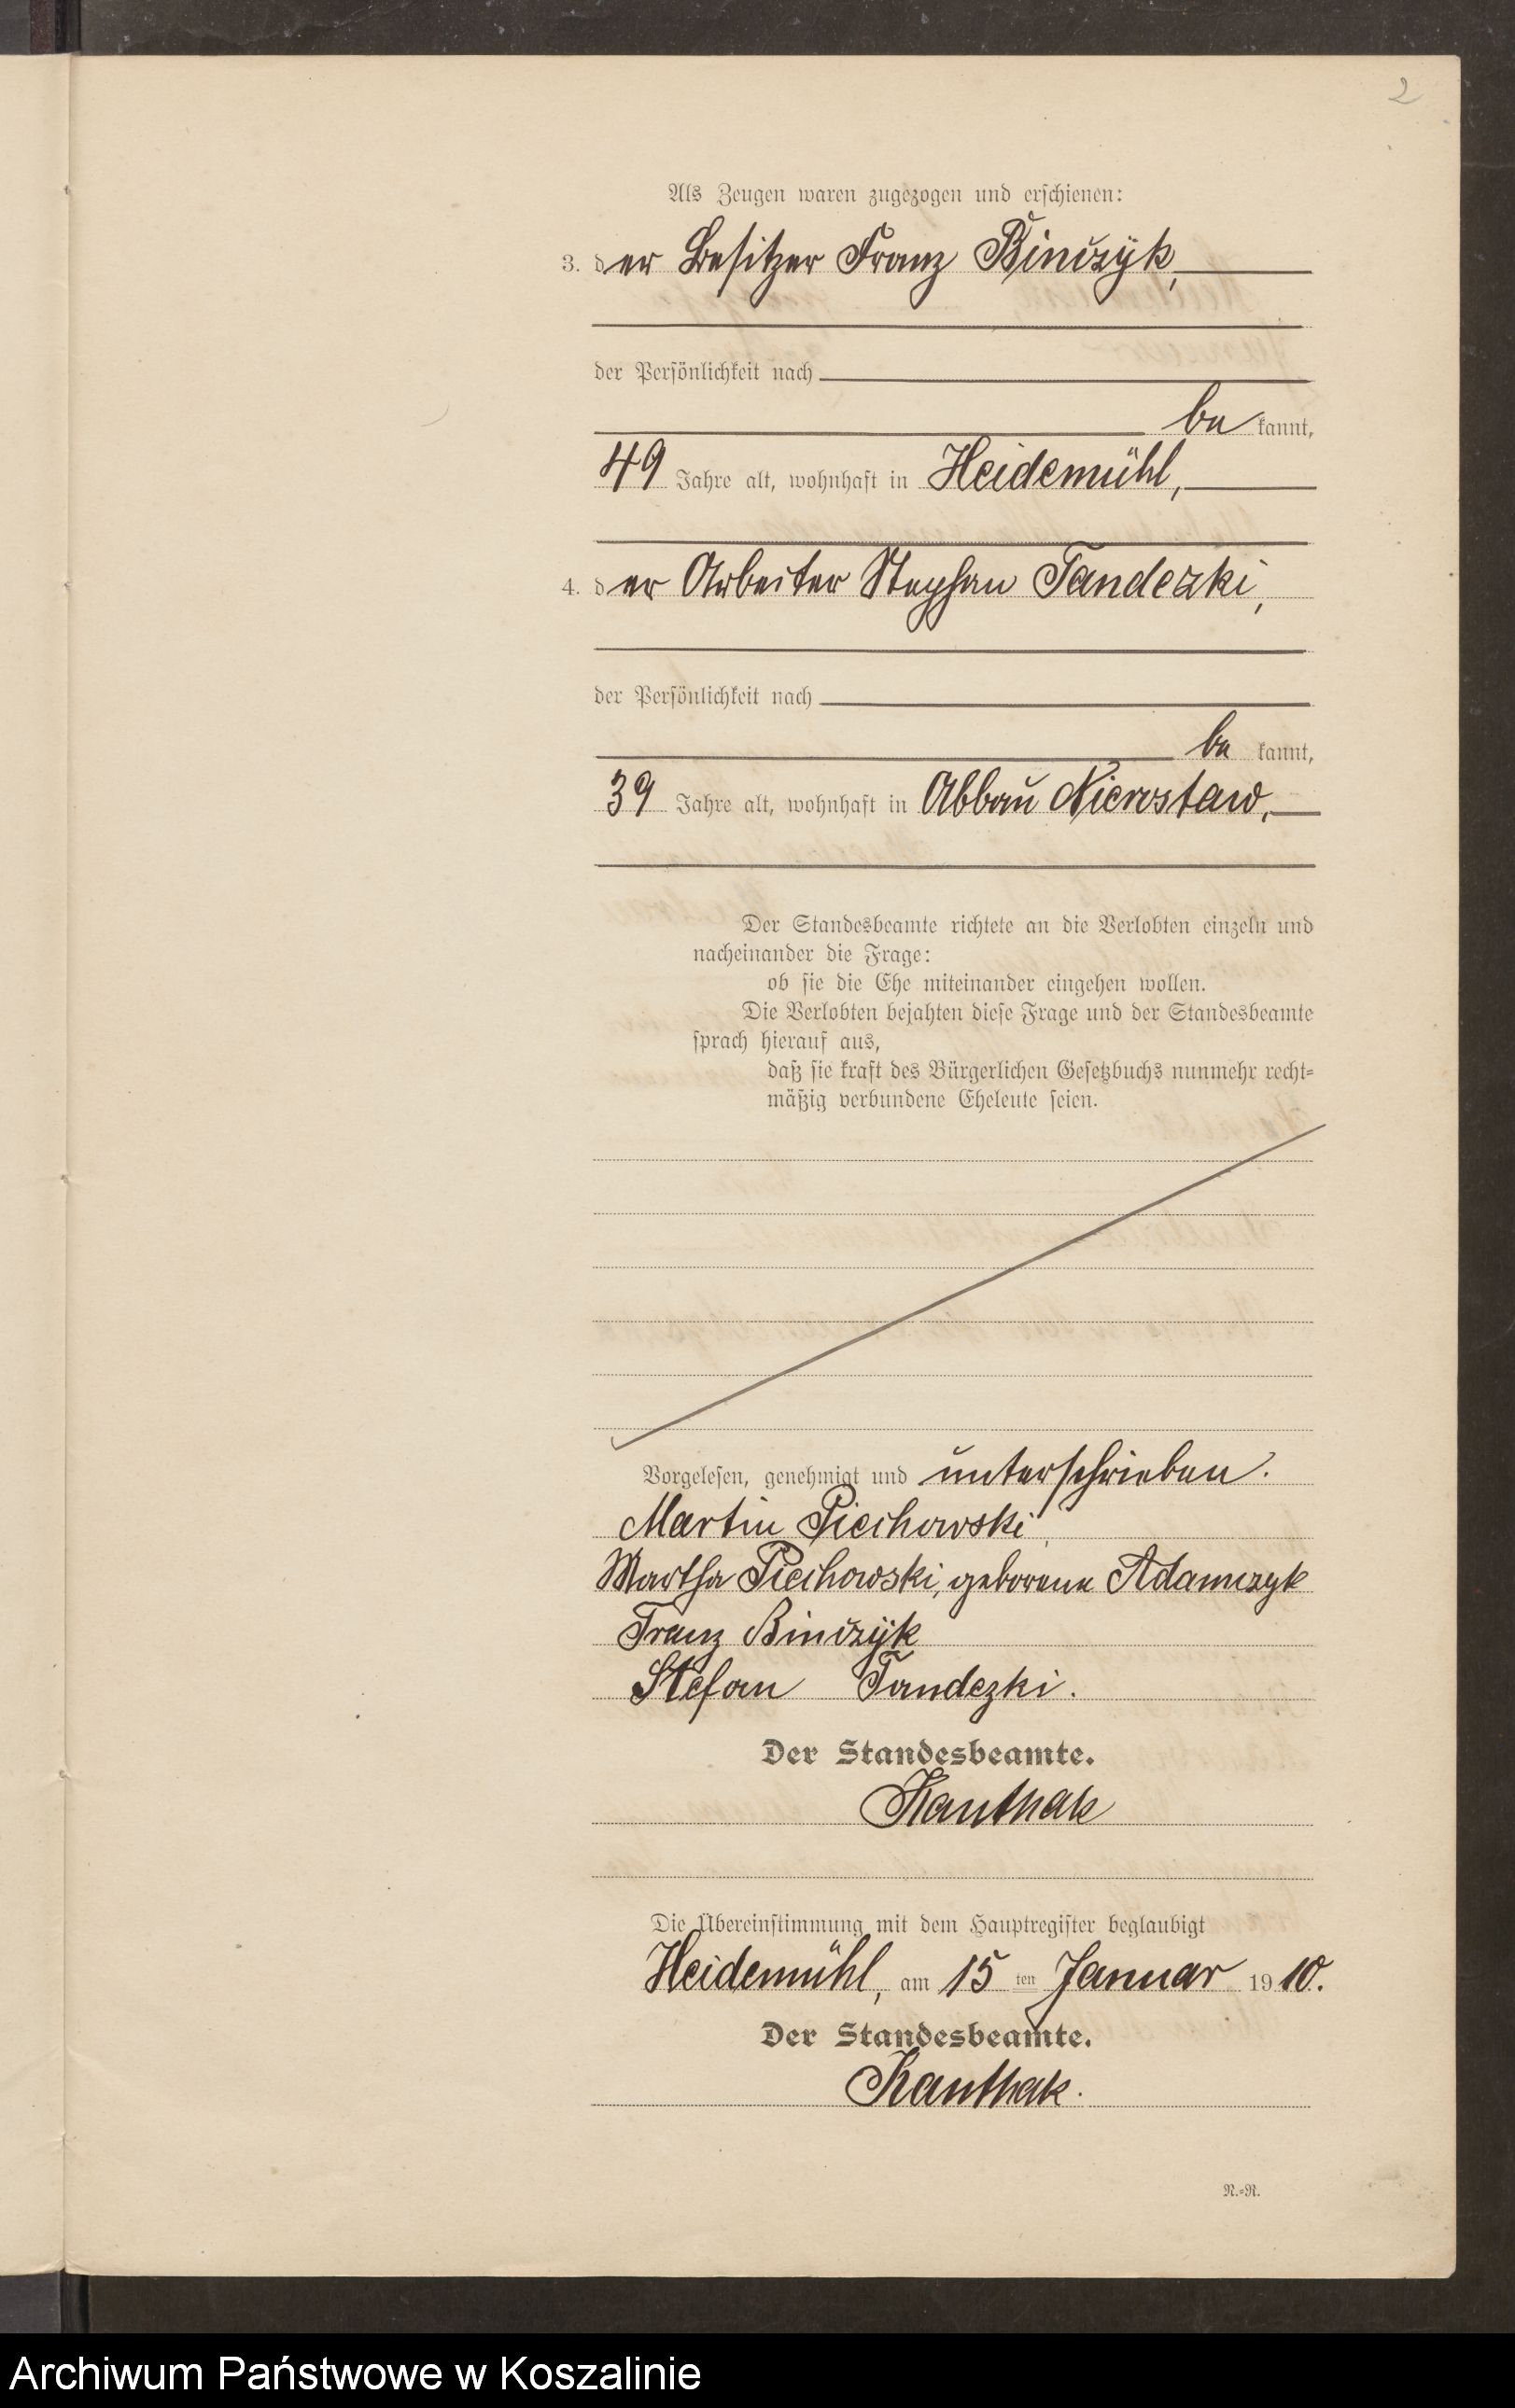 2
Als Zeugen waren zugezogen und erschienen:
3. der Besitzer Franz Binczyk,
der Persönlichkeit nach
be kannt,
49 Jahre alt, wohnhaft in Heidemühl,
4. der Arbeiter Stephan Tandezki,
der Persönlichkeit nach
be kannt,
39 Jahre alt, wohnhaft in Abbau Nierostaw,
Der Standesbeamte richtete an die Verlobten einzeln und
nacheinander die Frage:
ob sie die Ehe miteinander eingehen wollen.
Die Verlobten bejahten diese Frage und der Standesbeamte
sprach hierauf aus,
daß sie kraft des Bürgerlichen Gesetzbuchs nunmehr recht=
mäßig verbundene Eheleute seien.
Vorgelesen, genehmigt und unterschrieben.
Martin Piechowski,
Martha Piechowski, geborene Adamczyk
Franz Binczyk
Stefan Tandezki.
Der Standesbeamte.
Kanthak
Die Übereinstimmung mit dem Hauptregister beglaubigt
Heidemühl, am 15 ten Januar 1910.
Der Standesbeamte.
Kanthak.
N.=R.
Archiwum Państwowe w Koszalinie